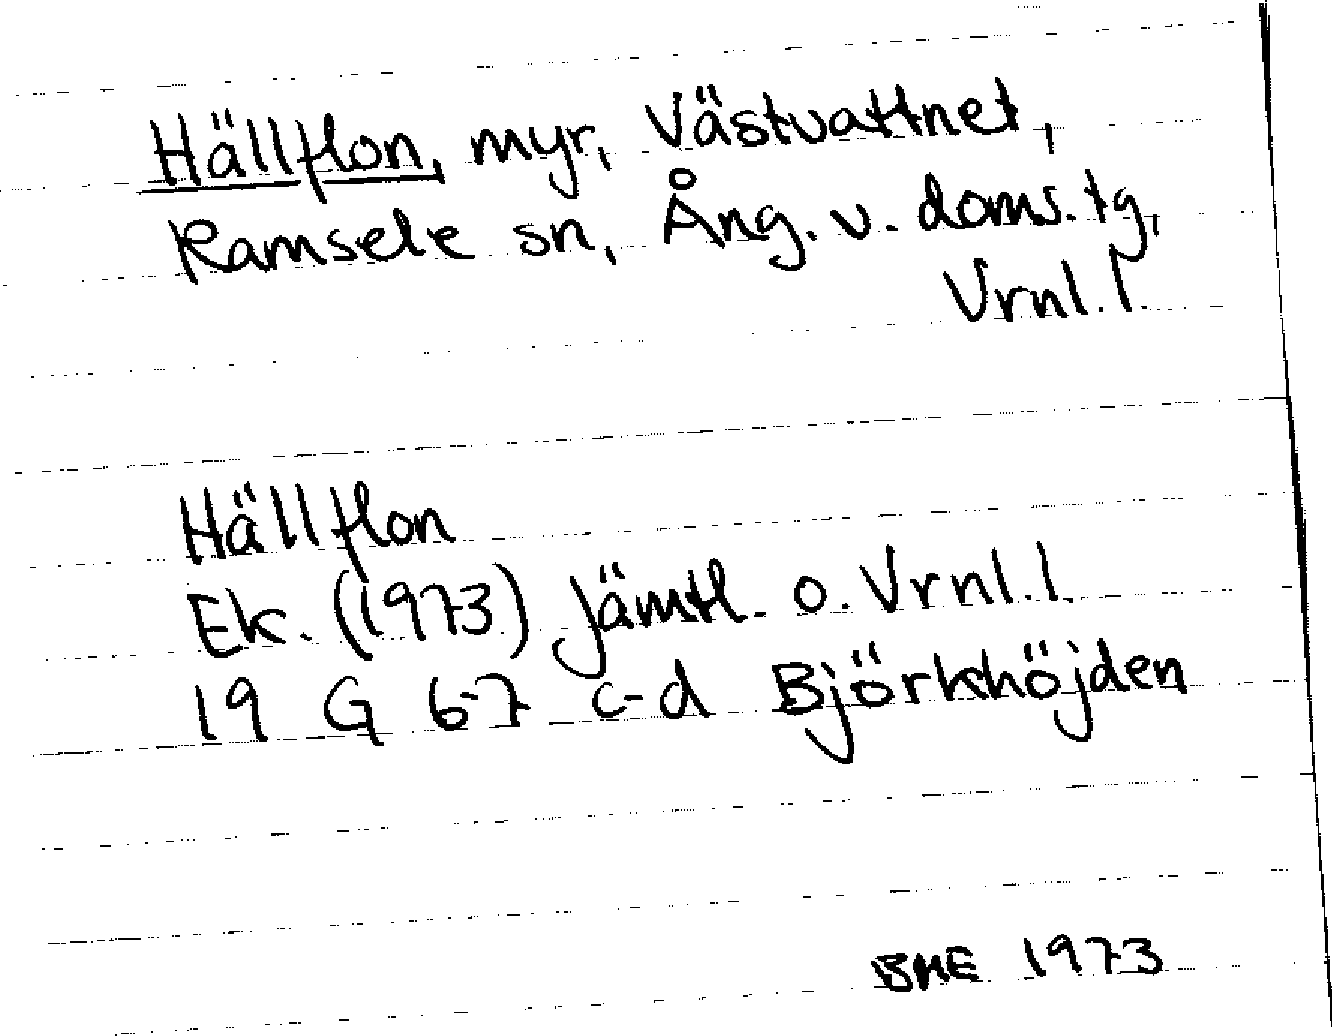 Hällflon, myr, Västvattnet,
Ramsele sn, Ång. v. doms. tg,
Vrnl. l.
Hällflon
Ek. (1973) Jämtl. o. Vrnl. l.
19 G 6-7 c-d Björkhöjden
BME 1973